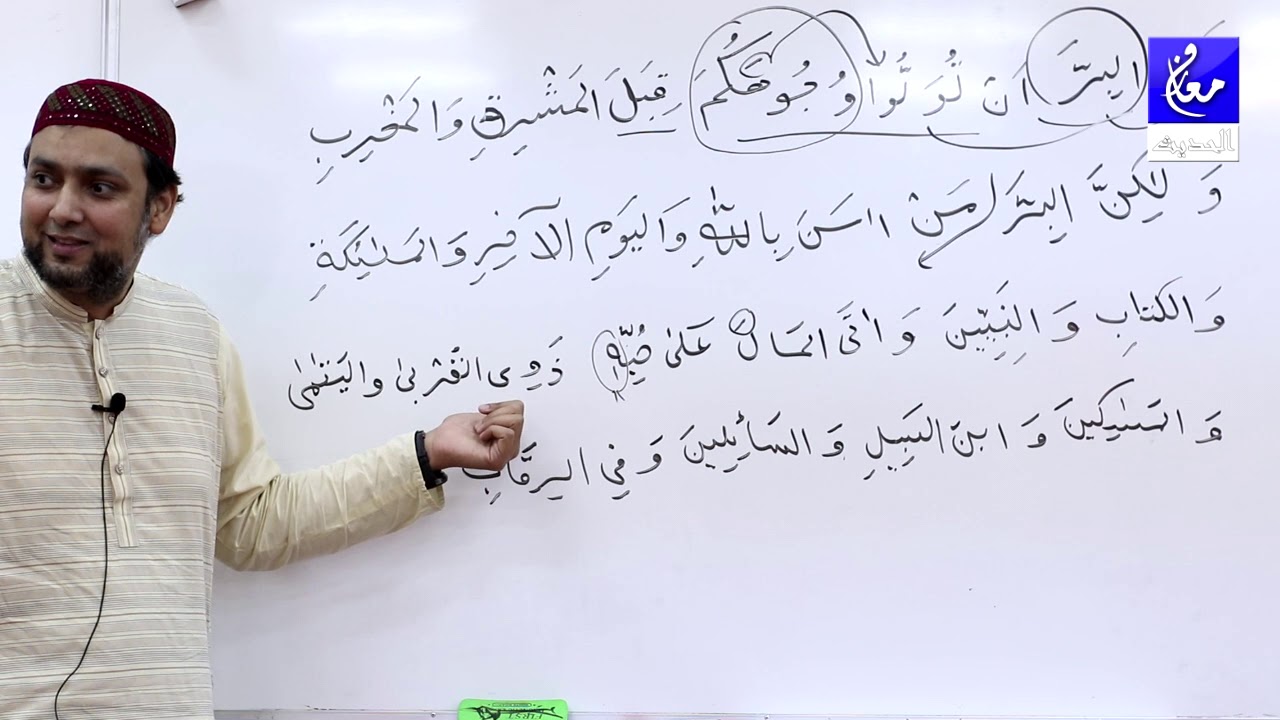 البِرَّ اَنْ تُوَلُّوا وُجُوهَكُمْ قِبَلَ الْمَشْرِقِ وَالْمَغْرِبِ
وَ لٰكِنَّ الْبِرَّ مَنْ اٰمَنَ بِاللّٰهِ وَالْيَوْمِ الْاٰخِرِ وَالْمَلٰئِكَةِ
وَالْكِتَابِ وَ النَّبِيّٖنَ وَ اٰتَى الْمَالَ عَلٰى حُبِّهٖ ذَوِى الْقُرْبٰى وَالْيَتٰمٰى
وَ الْمَسٰكِيْنَ وَ ابْنَ السَّبِيْلِ وَ السَّآئِلِيْنَ وَ فِي الرِّقَابِ
معارف
الحديث